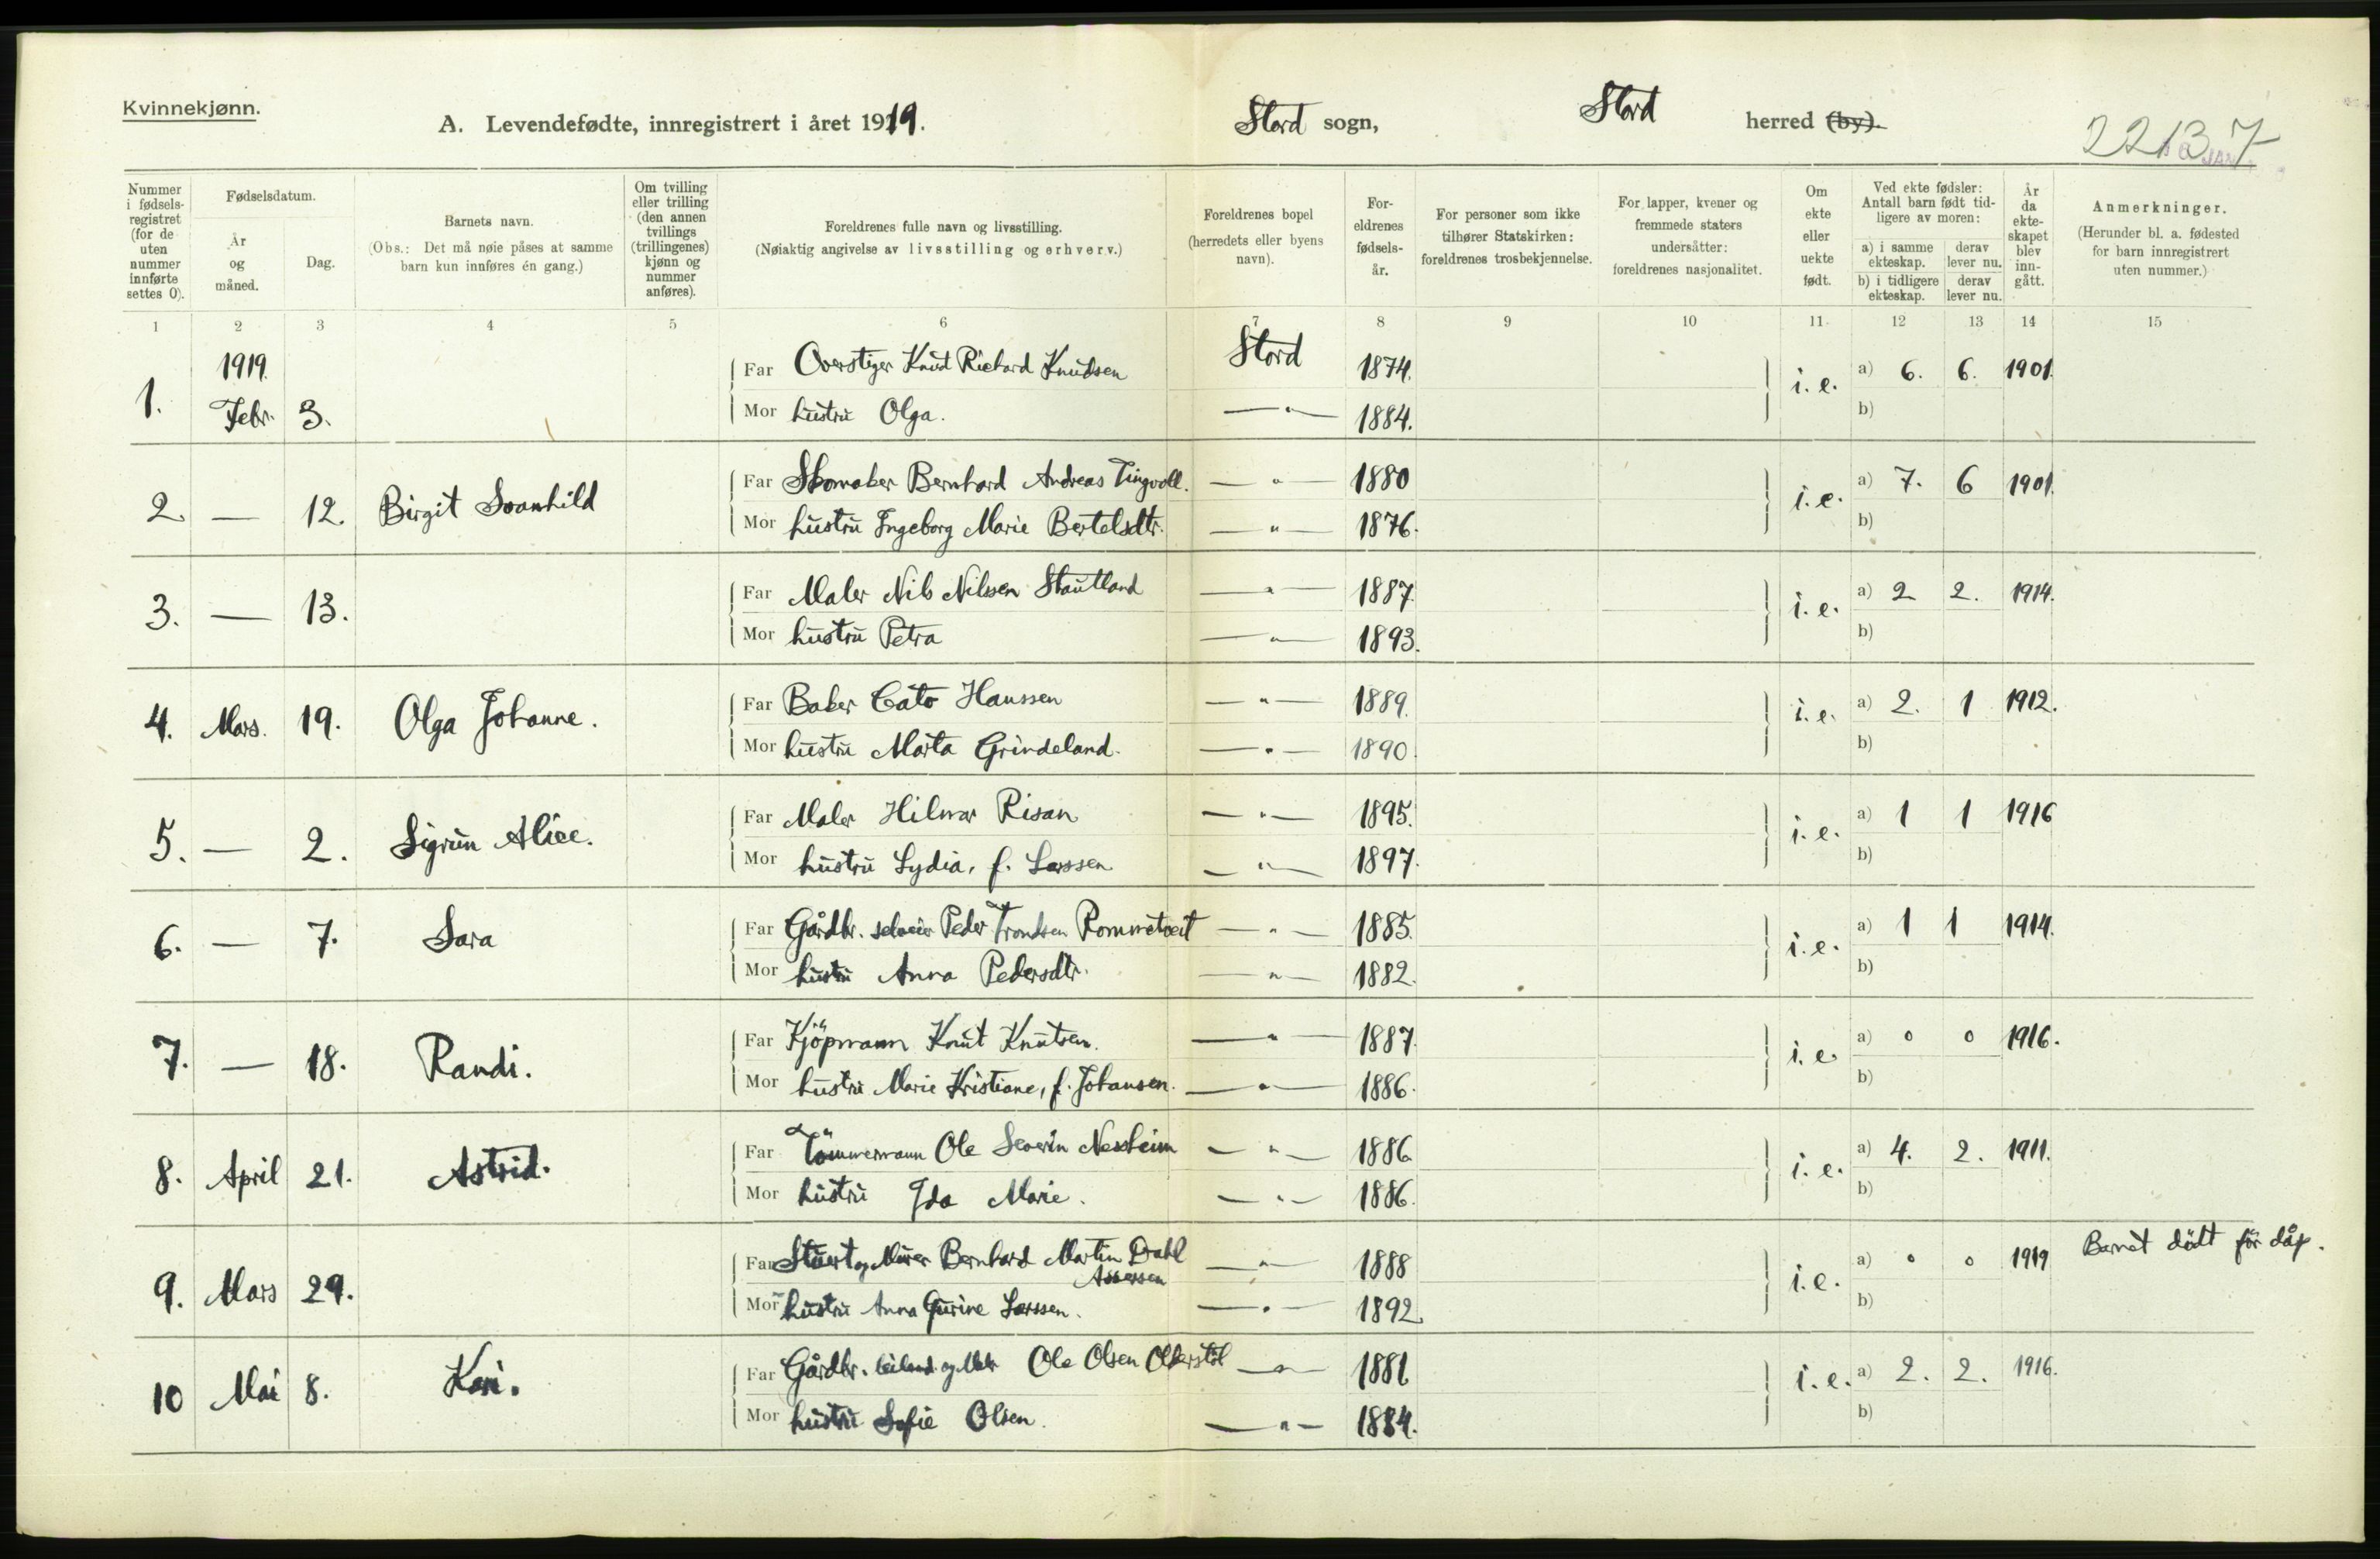 Kvinnekjønn.
A. Levendefødte, innregistrert i året 1919. Stord sogn, Stord herred (by).
22137
Nummer i fødselsregistret (for de uten nummer innførte settes 0).
Fødselsdatum.
År og måned.
Dag.
Barnets navn.
(Obs.: Det må nøie påses at samme barn kun innføres én gang.)
Om tvilling eller trilling (den annen tvillings (trillingenes) kjønn og nummer anføres).
Foreldrenes fulle navn og livsstilling.
(Nøiaktig angivelse av livsstilling og erhverv.)
Foreldrenes bopel (herredets eller byens navn).
Foreldrenes fødselsår.
For personer som ikke tilhører Statskirken: foreldrenes trosbekjennelse.
For lapper, kvener og fremmede staters undersåtter: foreldrenes nasjonalitet.
Om ekte eller uekte født.
Ved ekte fødsler: Antall barn født tidligere av moren:
a) i samme ekteskap. derav lever nu.
b) i tidligere ekteskap. derav lever nu.
År da ekteskapet blev inngått.
Anmerkninger.
(Herunder bl. a. fødested for barn innregistrert uten nummer.)
1 2 3 4 5 6 7 8 9 10 11 12 13 14 15
1. 1919. Febr. 3. Far Overstiger Knut Richard Knudsen Stord 1874. i. e. a) 6. 6. 1901.
Mor hustru Olga. — " — 1884. b)
2. — 12. Birgit Svanhild Far Skomaker Bernhard Andreas Tingvoll. — " — 1880 i. e. a) 7. 6 1901.
Mor hustru Ingeborg Marie Bertelsdtr. — " — 1876. b)
3. — 13. Far Maler Nils Nilssen Stautland — " — 1887. i. e. a) 2 2. 1914.
Mor hustru Petra — " — 1893. b)
4. Mars. 19. Olga Johanne. Far Baker Cato Hanssen — " — 1889. i. e. a) 2. 1 1912.
Mor hustru Marta Grindeland. — " — 1890. b)
5. — 2. Sigrun Alice. Far Maler Hilmar Risan — " — 1895. i. e. a) 1 1 1916
Mor hustru Lydia, f. Larssen — " — 1897. b)
6. — 7. Sara Far Gårdbr. selveier Peder Trondsen Rommetveit — " — 1885. i. e. a) 1 1 1914.
Mor hustru Anna Pedersdtr. — " — 1882. b)
7. — 18. Randi. Far Kjöpmann Knut Knutsen. — " — 1887. i. e. a) 0 0 1916.
Mor hustru Marie Kristiane, f. Johansen. — " — 1886. b)
8. April 21. Astrid. Far Tömmermann Ole Severin Nessheim — " — 1886. i. e. a) 4. 2. 1911.
Mor hustru Ida Marie. — " — 1886. b)
9. Mars 29. Far og Murer Bernhard Martin Dahl Assersen — " — 1888 i. e. a) 0 0 1919 Barnet dödt för dåp.
Mor hustru Anna Gurine Larssen. — " — 1892. b)
10 Mai 8. Kari. Far Gårdbr. og Ole Olsen — " — 1881 i. e. a) 2. 2. 1916.
Mor hustru Sofie Olsen. — " — 1884. b)